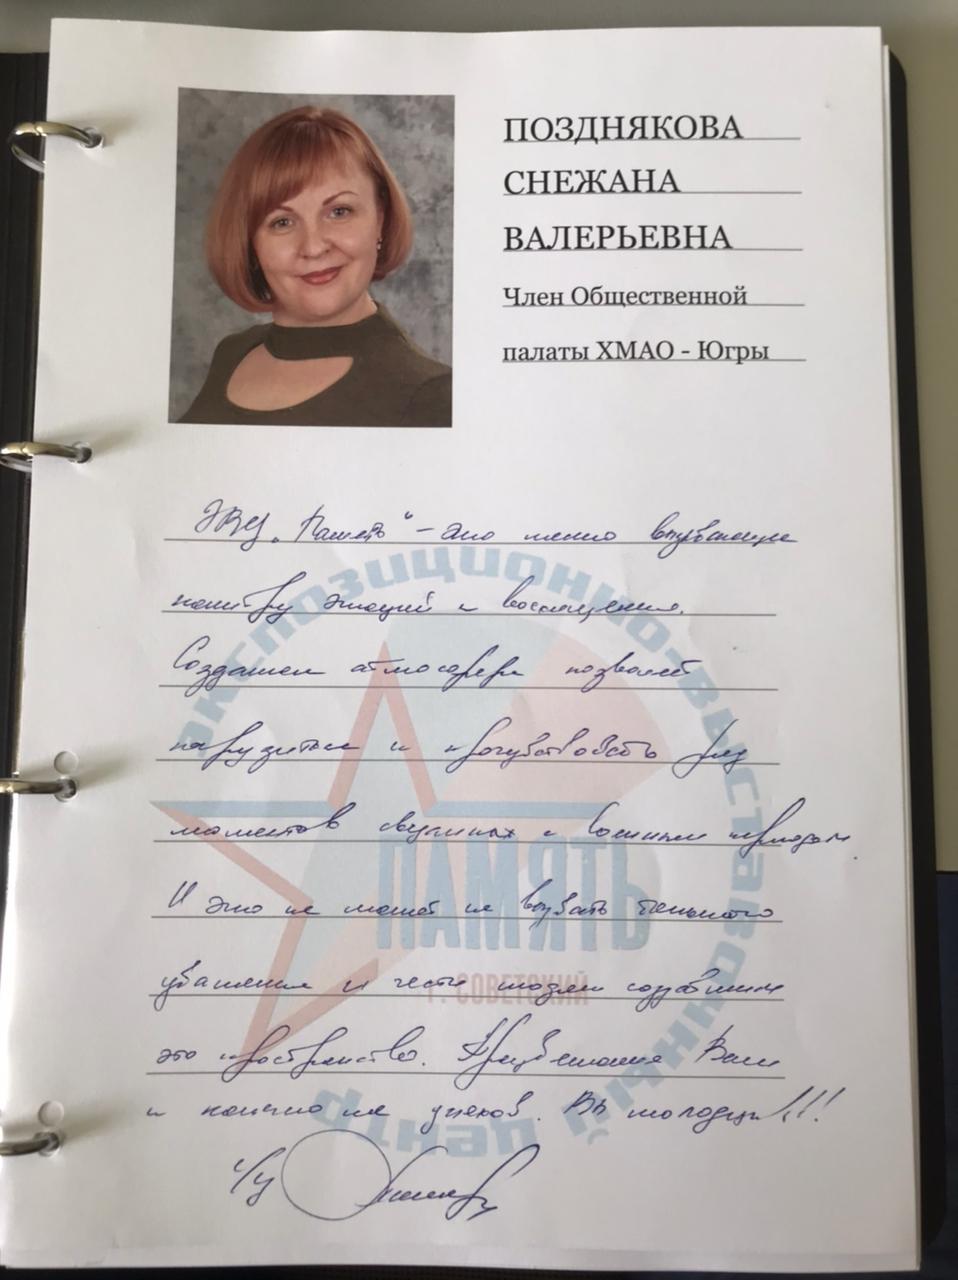 ПОЗДНЯКОВА
СНЕЖАНА
ВАЛЕРЬЕВНА
Член Общественной
палаты ХМАО - Югры
ЭВЦ „Память“ – это место
палитру эмоций и восхищения.
Созданная атмосфера позволяет
погрузиться и прочувствовать ряд
моментов связанных с военным периодом
И это не может не вызвать
уважения и чести людям создавшим
это пространство. Вам
и конечно же успехов. Вы молодцы!!!
экспозиционно-выставочный центр
ПАМЯТЬ
Г. СОВЕТСКИЙ